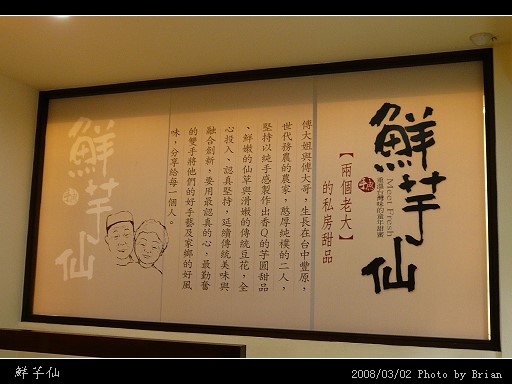 鮮芋仙
Meet Fresh
【兩個老大】
的私房甜品
傅大姐與傅大哥,生長在台中豐原,
世代務農的農家,憨厚純樸的二人,
堅持以純手感製作出香Q的芋圓甜品
、鮮嫩的仙草與滑嫩的傳統豆花,全
心投入、認真堅持,延續傳統美味與
融合創新,要用最認真的心,最勤奮
的雙手將他們的好手藝及家鄉的好風
味,分享給每一個人。
鮮芋仙
鮮芋仙
2008/03/02 Photo by Brian